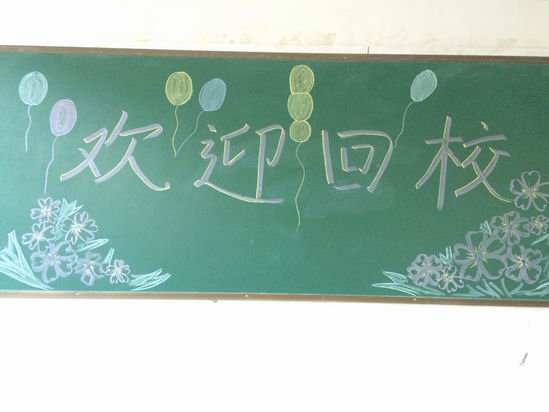 欢迎回校